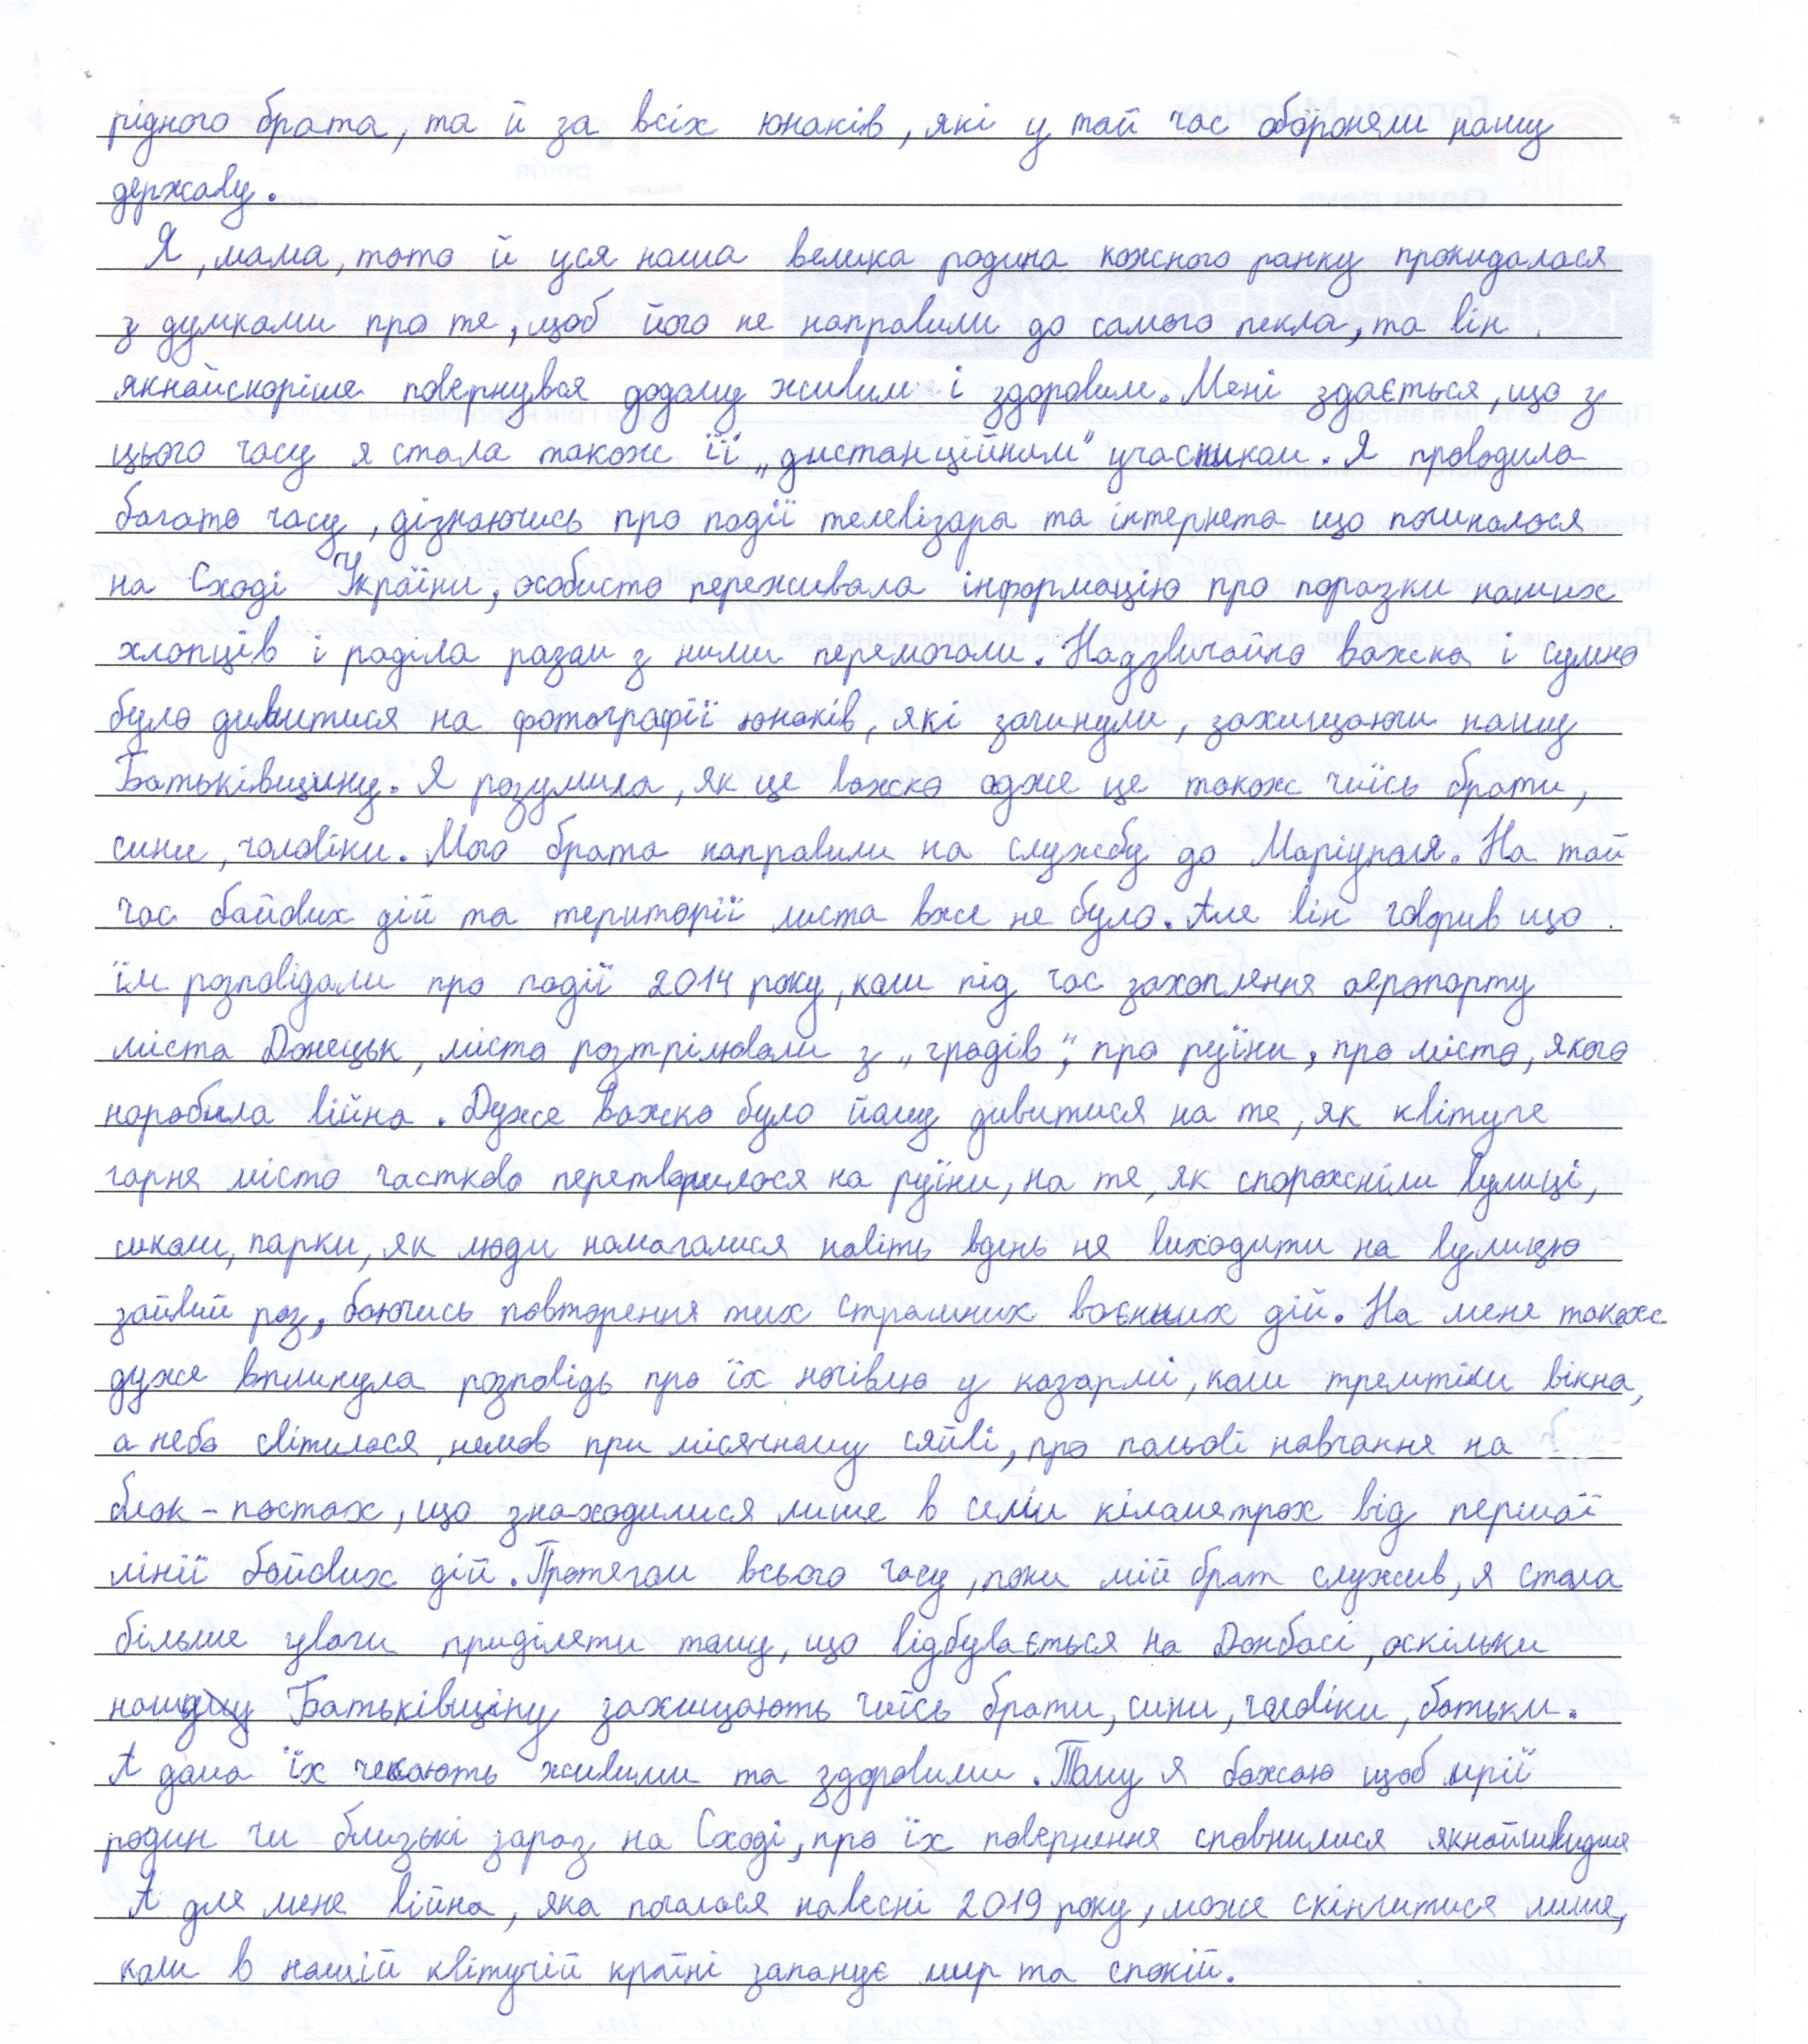 рідного брата, та й за всіх юнаків, які у той час обороняли нашу
державу.
Я, мама, тато й уся наша велика родина кожного ранку прокидалася
з думками про те, щоб його не направили до самого пекла, та він
якнайскоріше повернувся додому живим і здоровим. Мені здається, що з
цього часу я стала також її „дистанційним" учасником. Я проводила
багато часу, дізнаючись про події телевізора та інтернета що починалося
на Сході України, особисто переживала інформацію про поразки наших
хлопців і раділа разом з ними перемогами. Надзвичайно важка і сумно
було дивитися на фотографії юнаків, які загинули, захищаючи нашу
Батьківщину. Я розумила, як це важко адже це також чиїсь брати,
сини, чоловіки. Мого брата направили на службу до Маріуполя. На той
час бойових дій та території міста вже не було. Але він говорив що
їм розповідали про події 2014 року, коли під час захоплення аеропорту
міста Донецьк, місто розтрілювали з „градів", про руїни, про місто, якого
наробила війна. Дуже важко було йому дивитися на те, як квітуче
гарне місто частково перетворилося на руїни, на те, як спорожніли вулиці,
школи, парки, як люди намагалися навіть вдень не виходити на вулицю
зайвий раз, боючись повторення тих страшних воєнних дій. На мене також
дуже вплинула розповідь про їх ночівлю у казармі, коли тремтіли вікна,
а небо світилося, немов при місячному сяйві, про польові навчання на
блок-постах, що знаходилися лише в семи кілометрах від першої
лінії бойових дій. Протягом всього часу, поки мій брат служив, я стала
більше уваги приділяти тому, що відбувається на Донбасі, оскільки
нашу Батьківщину захищають чиїсь брати, сини, чоловіки, батьки.
А дома їх чекають живими та здоровими. Тому я бажаю щоб мрії
родин чи близькі зараз на Сході, про їх повернення сповнилися якнайшвидше
А для мене війна, яка почалася навесні 2019 року, може скінчитися лише,
коли в нашій квітучій країні запанує мир та спокій.